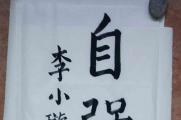 自强
李小